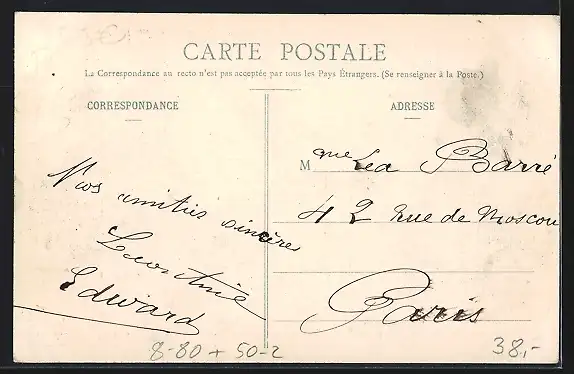 CARTE POSTALE
La Correspondance au recto n'est pas acceptée par tous les Pays Étrangers. (Se renseigner à la Poste.)
CORRESPONDANCE
Nos amitiés sincères
Léontine
Edward
ADRESSE
Mque Léa Barré
42 Rue de Moscou
Paris
8-80 + 50-2
38,-